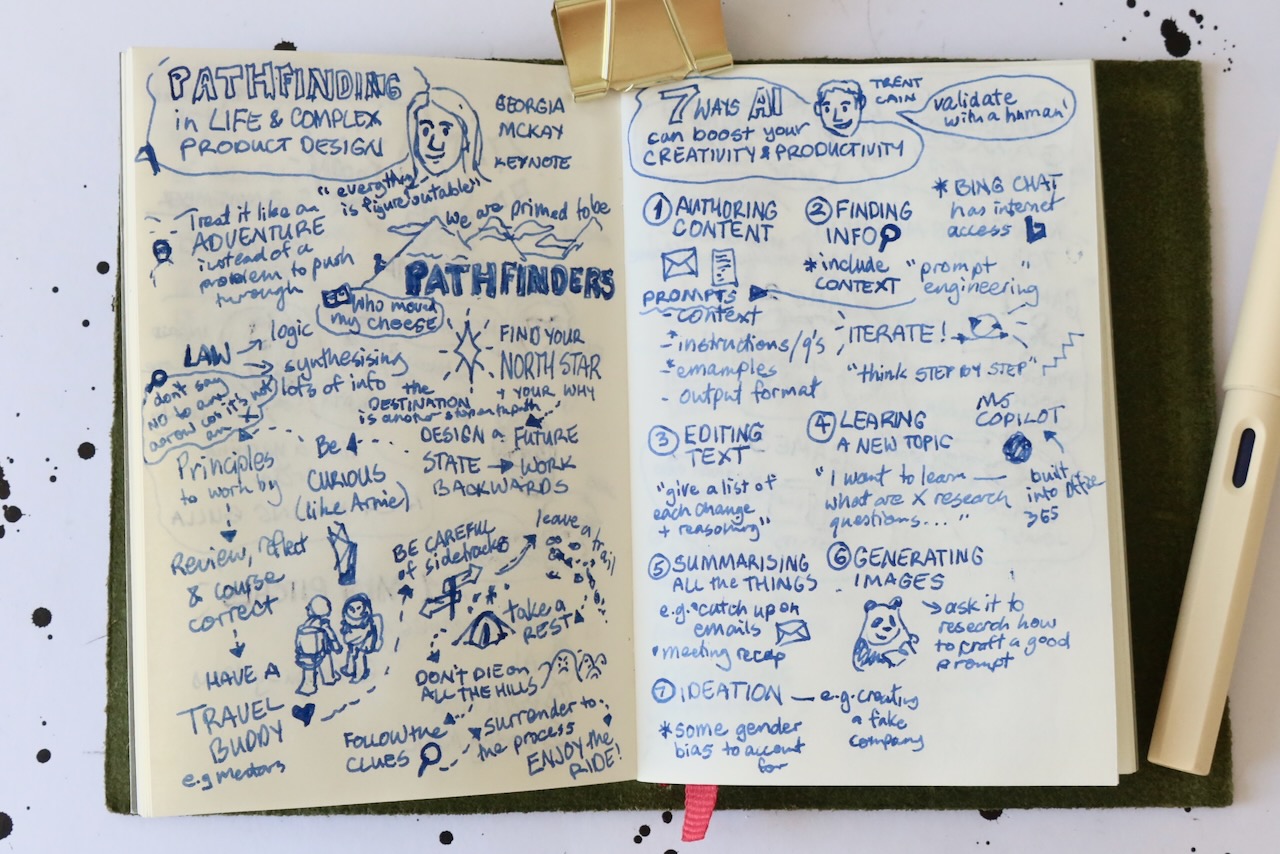 PATHFINDING
in LIFE & COMPLEX
PRODUCT DESIGN
GEORGIA
MCKAY
KEYNOTE
"everything
is figureoutable"
Treat it like an
ADVENTURE
instead of a
problem to push
through
we are primed to be
PATHFINDERS
Who moved
my cheese
LAW
logic
synthesising
lots of info
don't say
NO to an
arrow cos it's not
an X
FIND YOUR
NORTH STAR
+ YOUR WHY
the
DESTINATION
is another stop on the path
DESIGN a FUTURE
STATE → WORK
BACKWARDS
Principles
to work by
Be
CURIOUS
(like Arnie)
Review, reflect
& course
correct
HAVE A
TRAVEL
BUDDY
e.g mentors
BE CAREFUL
of sidetracks
leave a trail
take a
REST
DON'T DIE on
ALL THE HILLS
FOLLOW the
CLUES
surrender to
the process
ENJOY the
RIDE!
7 WAYS AI
can boost your
CREATIVITY & PRODUCTIVITY
TRENT
CAIN
'validate
with a human'
① AUTHORING
CONTENT
PROMPTS
- context
- instructions/q's
- emamples
- output format
② FINDING
INFO
* include
CONTEXT
* BING CHAT
has internet
access
"prompt
engineering"
ITERATE!
"think STEP BY STEP"
③ EDITING
TEXT
"give a list of
each change
+ reasoning"
④ LEARING
A NEW TOPIC
"I want to learn —
what are X research
questions..."
MS
COPILOT
built
into Office
365
⑤ SUMMARISING
ALL the THINGS
e.g. • catch up on
emails
• meeting recap
⑥ GENERATING
IMAGES
→ ask it to
research how
to craft a good
prompt
⑦ IDEATION — e.g. creating
a fake
company
* some gender
bias to account
for